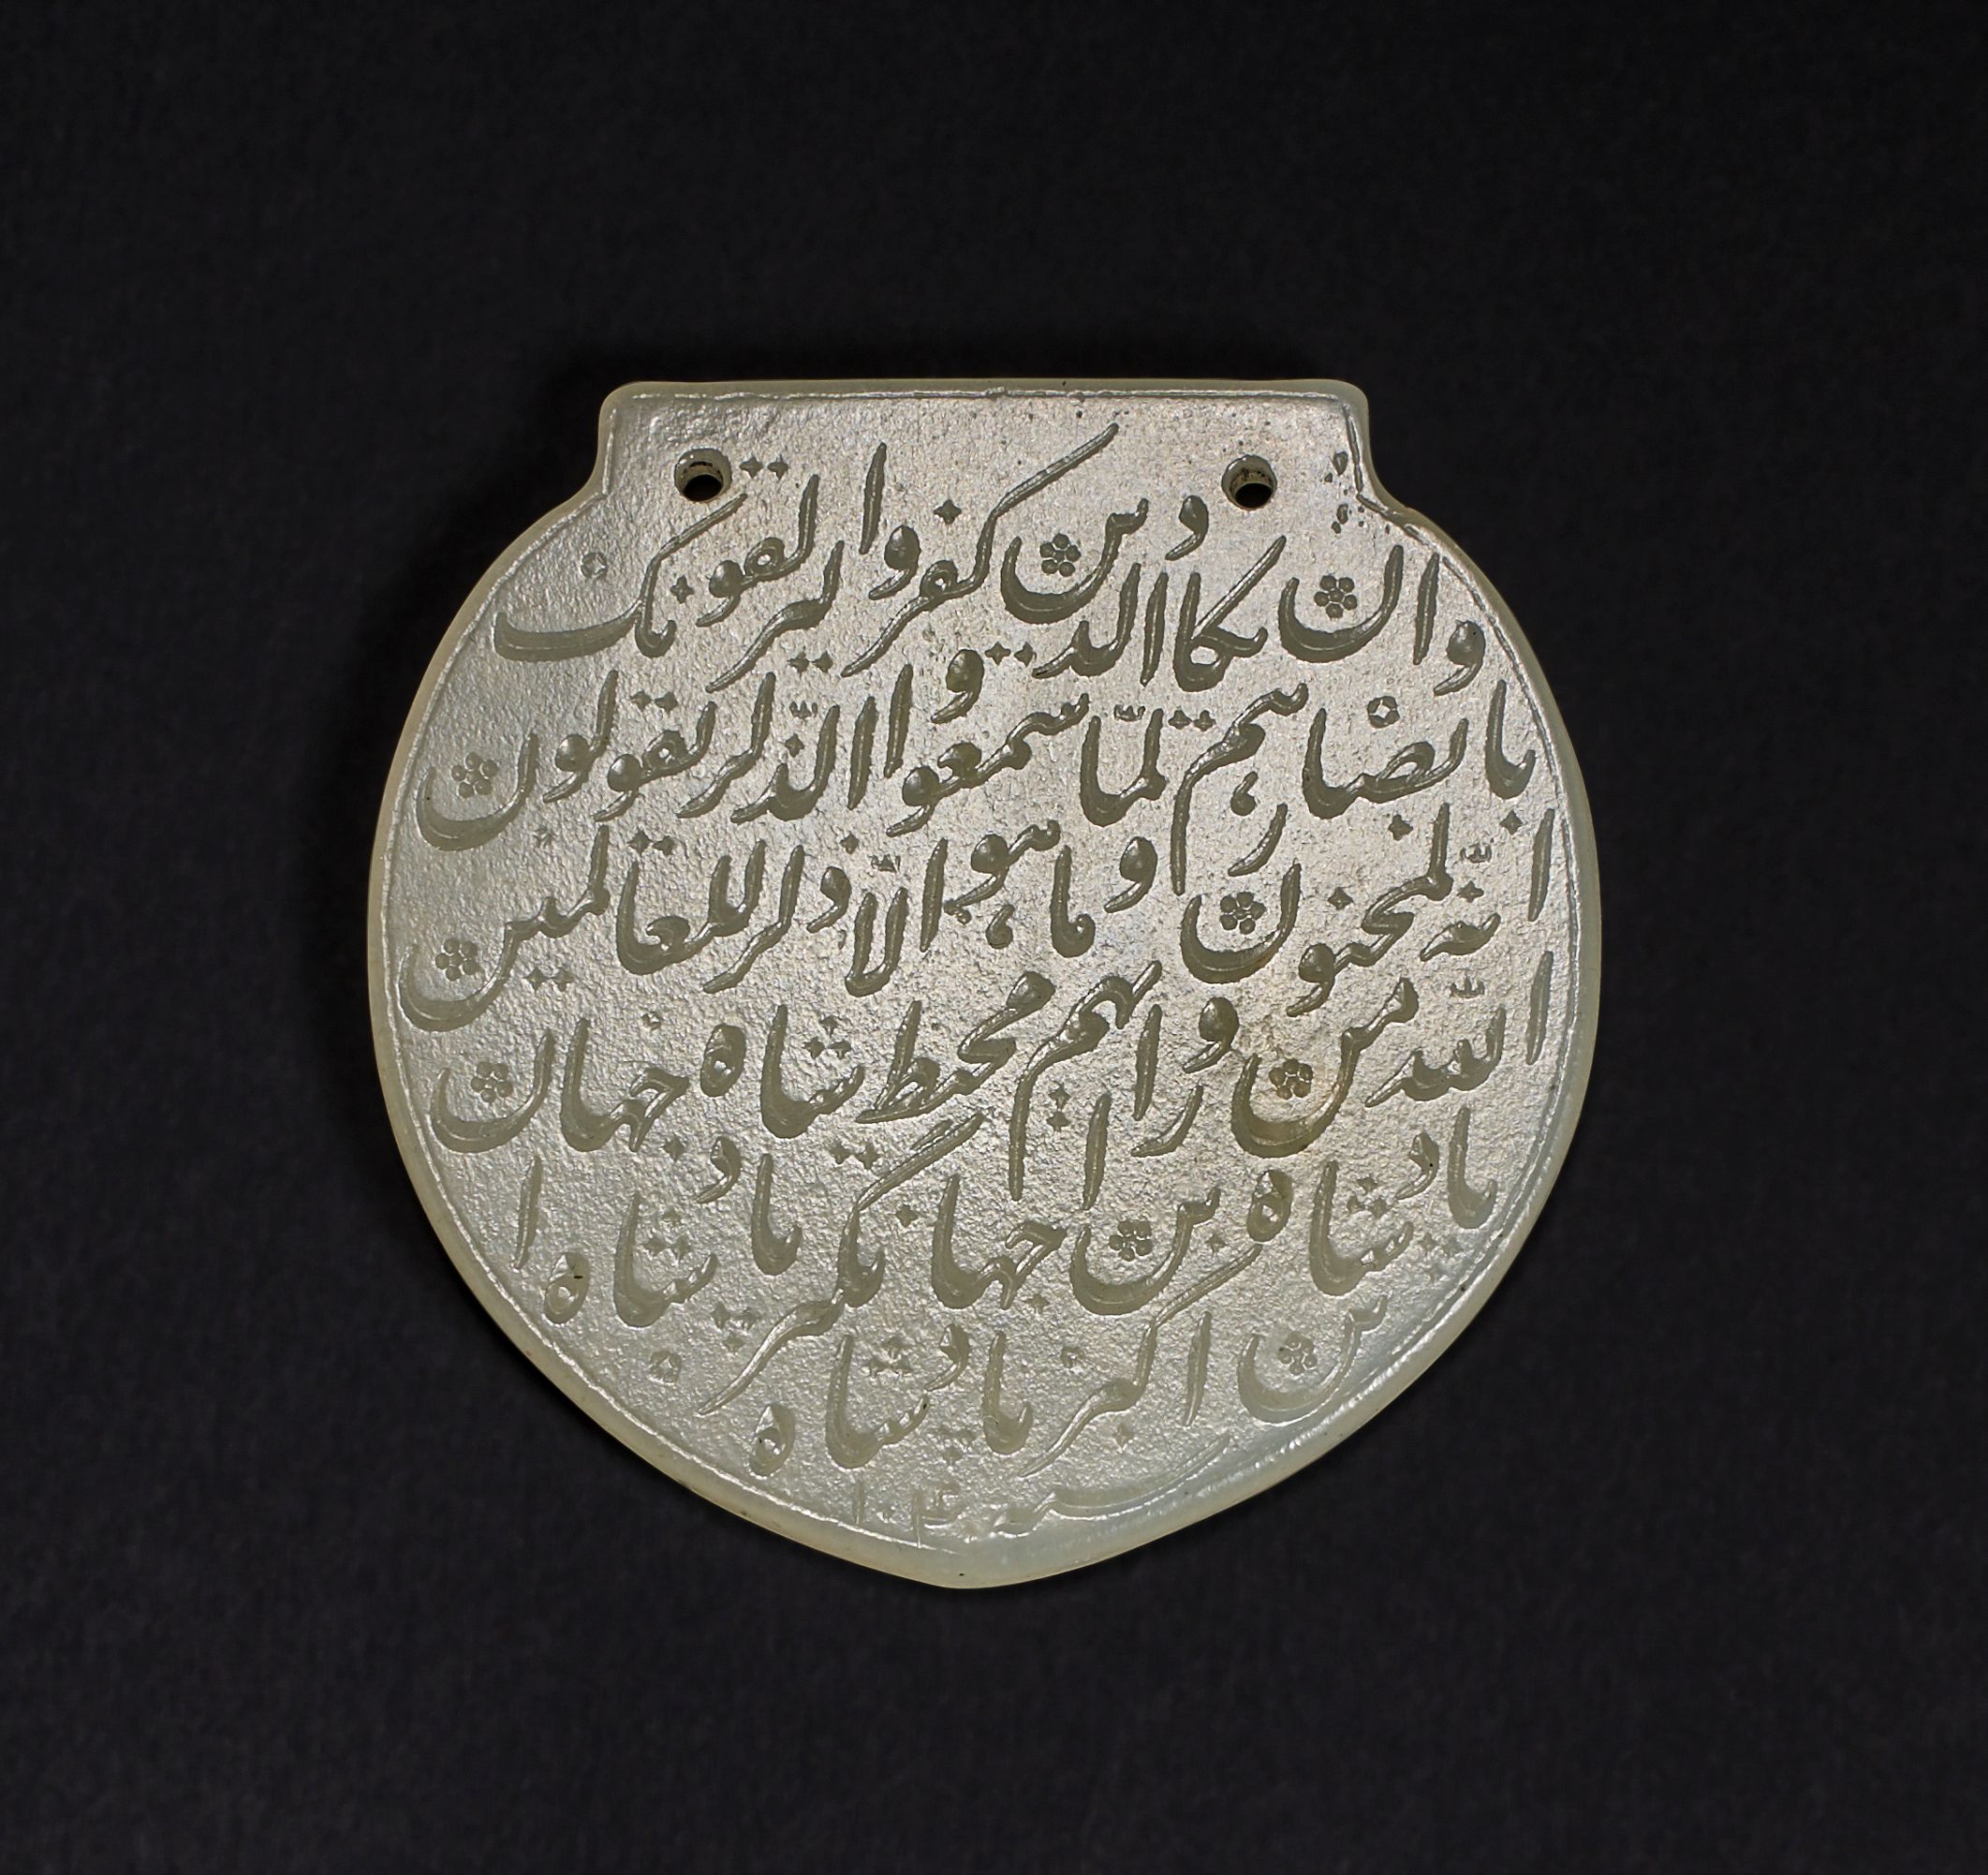 وان یکاد الذین کفروا لیزلقونک
بابصارهم لمّا سمعوا الذّکر و یقولون
انّه لمجنون و ما هو الّا ذکر للعالمین
اللّه من ورائهم محیط شاه جهان
پادشاه بن جهانکیر پادشاه ا
بن اکبر پادشاه
سنه